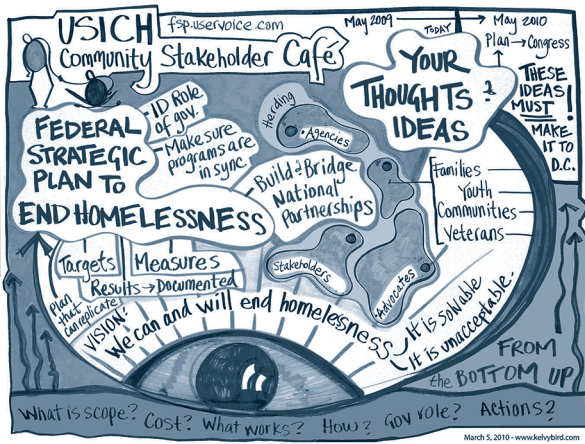 USICH
Community Stakeholder Café
fsp.uservoice.com
May 2009
TODAY
May 2010
Plan → Congress
YOUR
THOUGHTS &
IDEAS
THESE
IDEAS
MUST!
MAKE
IT TO
D.C.
FEDERAL
STRATEGIC
PLAN TO
END HOMELESSNESS
- ID Role
of gov.
- Make sure
programs are
in sync.
- Build & Bridge
National
Partnerships
Herding
Agencies
Stakeholders
Advocates
Families
Youth
Communities
Veterans
Targets
Measures
Results → Documented
Plan
that
can replicate
VISION:
We can and will end homelessness
It is solvable
It is unacceptable.
FROM
the BOTTOM UP
What is scope? Cost? What works? How? Gov role? Actions?
March 5, 2010 - www.kelvybird.com